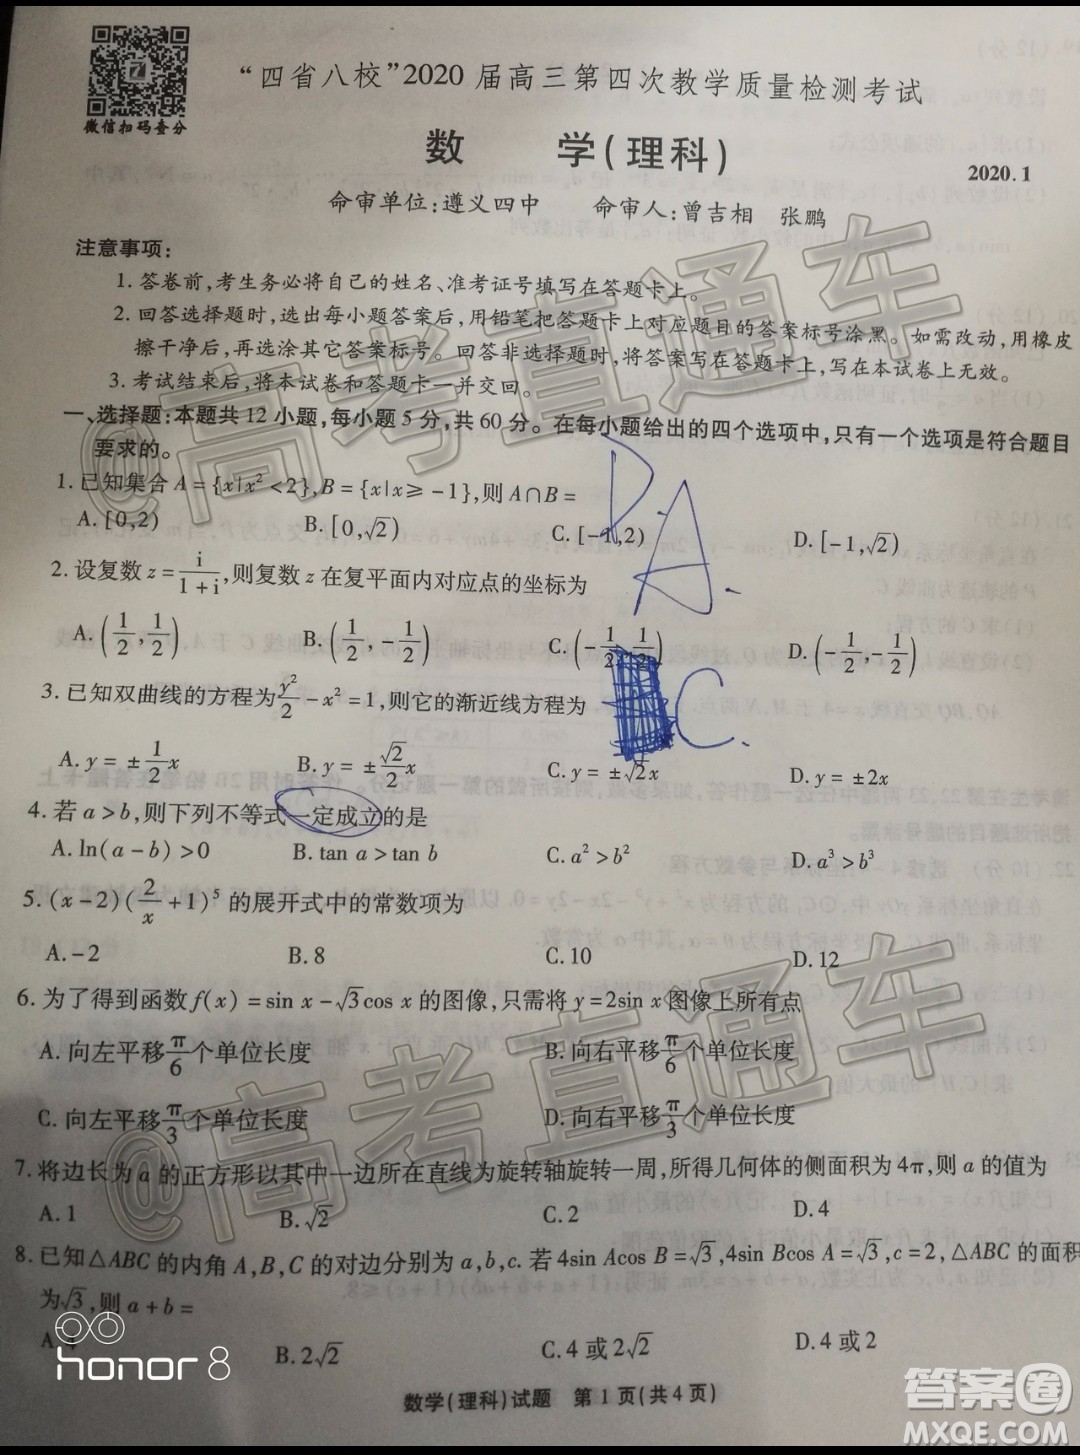 微信扫码查分
“四省八校”2020届高三第四次教学质量检测考试
数 学(理科)
2020.1
命审单位:遵义四中 命审人:曾吉相 张鹏
注意事项:
1.答卷前,考生务必将自己的姓名、准考证号填写在答题卡上。
2.回答选择题时,选出每小题答案后,用铅笔把答题卡上对应题目的答案标号涂黑。如需改动,用橡皮
擦干净后,再选涂其它答案标号。回答非选择题时,将答案写在答题卡上,写在本试卷上无效。
3.考试结束后,将本试卷和答题卡一并交回。
一、选择题:本题共12小题,每小题5分,共60分。在每小题给出的四个选项中,只有一个选项是符合题目
要求的。
1.已知集合A={x|x²<2},B={x|x≥-1},则A∩B=
A.[0,2) B.[0,√2) C.[-1,2) D.[-1,√2)
D.
2.设复数z=i/(1+i),则复数z在复平面内对应点的坐标为
A.
A.(1/2,1/2) B.(1/2,-1/2) C.(-1/2,1/2) D.(-1/2,-1/2)
3.已知双曲线的方程为y²/2-x²=1,则它的渐近线方程为
C.
A.y=±1/2x B.y=±√2/2x C.y=±√2x D.y=±2x
4.若a>b,则下列不等式一定成立的是
A.ln(a-b)>0 B.tan a>tan b C.a²>b² D.a³>b³
5.(x-2)(2/x+1)⁵的展开式中的常数项为
A.-2 B.8 C.10 D.12
6.为了得到函数f(x)=sin x-√3cos x的图像,只需将y=2sin x图像上所有点
A.向左平移π/6个单位长度 B.向右平移π/6个单位长度
C.向左平移π/3个单位长度 D.向右平移π/3个单位长度
7.将边长为a的正方形以其中一边所在直线为旋转轴旋转一周,所得几何体的侧面积为4π,则a的值为
A.1 B.√2 C.2 D.4
8.已知△ABC的内角A,B,C的对边分别为a,b,c.若4sin Acos B=√3,4sin Bcos A=√3,c=2,△ABC的面积
为√3,则a+b=
A.4 B.2√2 C.4或2√2 D.4或2
数学(理科)试题 第1页(共4页)
@高考直通车
@高考直通车
honor 8
答案圈
MXQE.COM